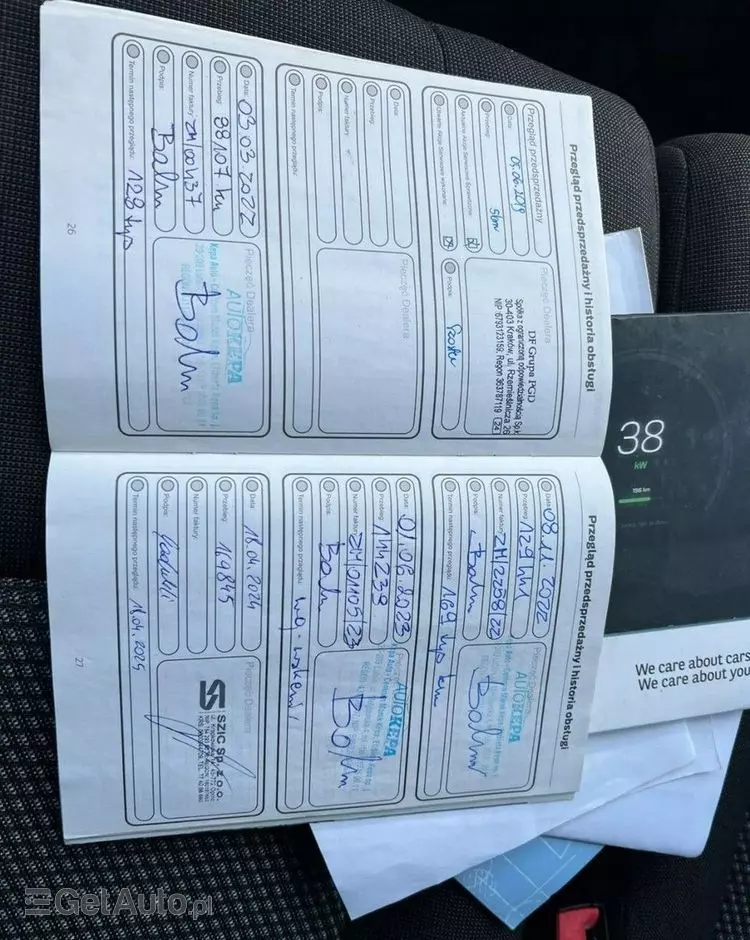 Przegląd przedsprzedażny i historia obsługi
Przegląd przedsprzedażny
Data: 05.06.2019
Przebieg: 5km
Aktualne Akcje Serwisowe Sprawdzone:
Otwarte Akcje Serwisowe wykonane:
Podpis:
Pieczęć Dealera
DF Grupa PGD
Spółka z ograniczoną odpowiedzialnością Sp.k
30-403 Kraków, ul. Rzemieślnicza 26
NIP 6793123159, Regon 363787119 24
Data:
Przebieg:
Numer faktury:
Podpis:
Termin następnego przeglądu:
Pieczęć Dealera
Data: 03.03.2022
Przebieg: 98107 km
Numer faktury: ZM/00437
Podpis:
Termin następnego przeglądu: 128 tys
Pieczęć Dealera
AUTOKĘPA
26
Przegląd przedsprzedażny i historia obsługi
Data: 08.11.2022
Przebieg:
Numer faktury: ZM/2258/22
Podpis:
Termin następnego przeglądu: 169 tys km
Pieczęć Dealera
AUTOKĘPA
Data: 01.06.2023
Przebieg: 144239
Numer faktury: ZM/01105/23
Podpis:
Termin następnego przeglądu: wg. wskazań
AUTOKĘPA
Data: 18.04.2024
Przebieg: 169845
Numer faktury:
Podpis:
Termin następnego przeglądu:
Pieczęć Dealera
SZIC SP. z o.o.
27
38
kW
196 km
We care about cars
We care about you
GetAuto.pl